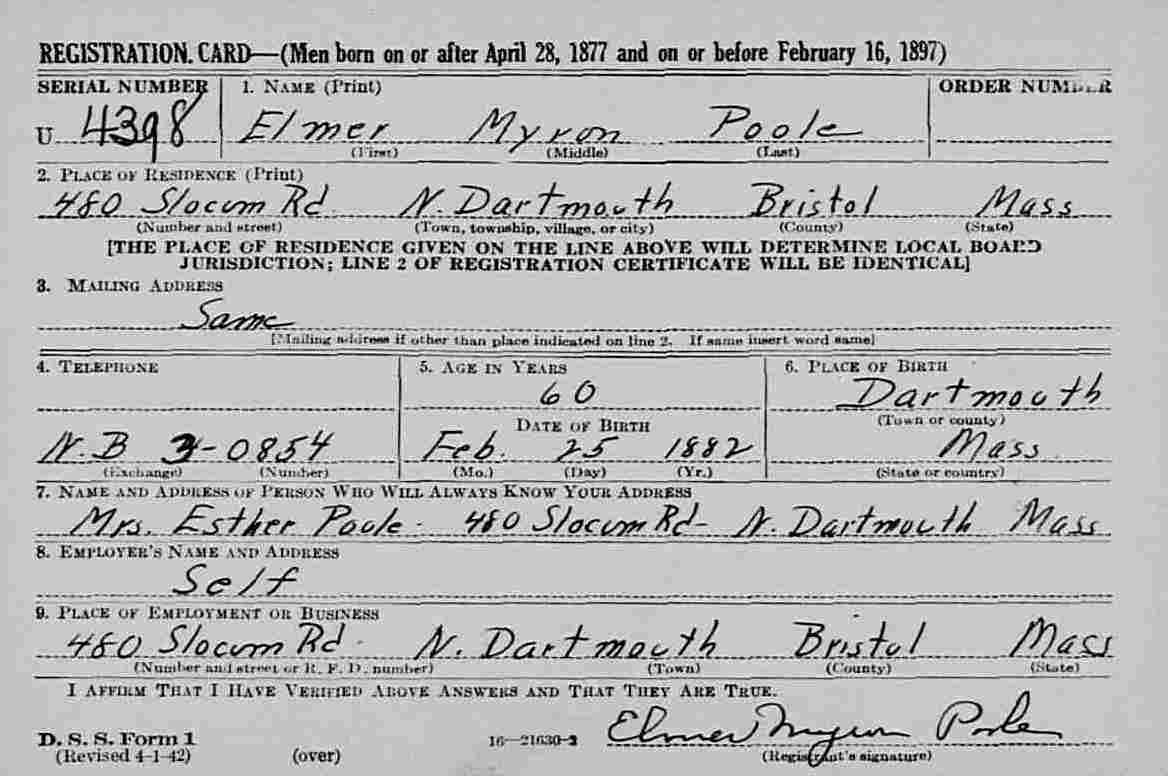 REGISTRATION CARD—(Men born on or after April 28, 1877 and on or before February 16, 1897)
SERIAL NUMBER 1. NAME (Print) ORDER NUMBER
U 4398 Elmer Myron Poole
(First) (Middle) (Last)
2. PLACE OF RESIDENCE (Print)
480 Slocum Rd N. Dartmouth Bristol Mass
(Number and street) (Town, township, village, or city) (County) (State)
[THE PLACE OF RESIDENCE GIVEN ON THE LINE ABOVE WILL DETERMINE LOCAL BOARD
JURISDICTION; LINE 2 OF REGISTRATION CERTIFICATE WILL BE IDENTICAL]
3. MAILING ADDRESS
Same
[Mailing address if other than place indicated on line 2. If same insert word same]
4. TELEPHONE 5. AGE IN YEARS 6. PLACE OF BIRTH
60 Dartmouth
DATE OF BIRTH (Town or county)
N.B 3-0854 Feb. 25 1882 Mass
(Exchange) (Number) (Mo.) (Day) (Yr.) (State or country)
7. NAME AND ADDRESS OF PERSON WHO WILL ALWAYS KNOW YOUR ADDRESS
Mrs. Esther Poole - 480 Slocum Rd - N. Dartmouth Mass
8. EMPLOYER'S NAME AND ADDRESS
Self
9. PLACE OF EMPLOYMENT OR BUSINESS
480 Slocum Rd - N. Dartmouth Bristol Mass
(Number and street or R. F. D. number) (Town) (County) (State)
I AFFIRM THAT I HAVE VERIFIED ABOVE ANSWERS AND THAT THEY ARE TRUE.
Elmer Myron Poole
D. S. S. Form 1 16—21630-2
(Revised 4-1-42) (over) (Registrant's signature)